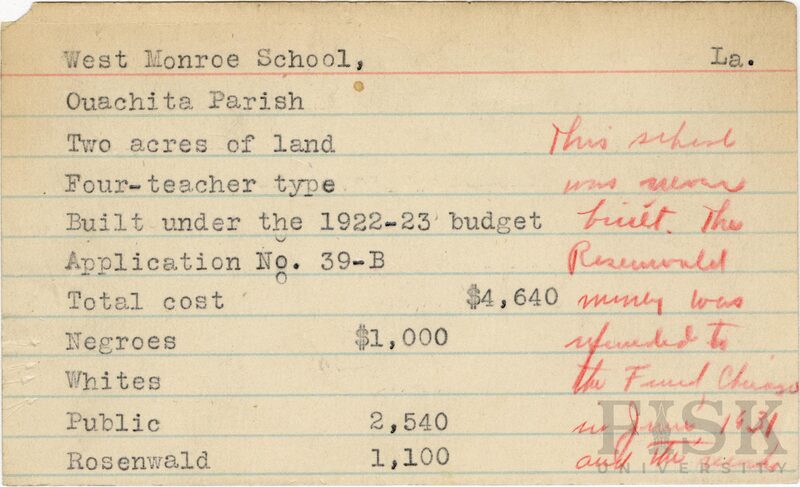 West Monroe School, La.
Ouachita Parish
Two acres of land
Four-teacher type
Built under the 1922-23 budget
Application No. 39-B
Total cost $4,640
Negroes $1,000
Whites
Public 2,540
Rosenwald 1,100
This school
was never
built. The
Rosenwald
money was
refunded to
the Fund, Chicago
in June, 1931
and the
FISK
UNIVERSITY